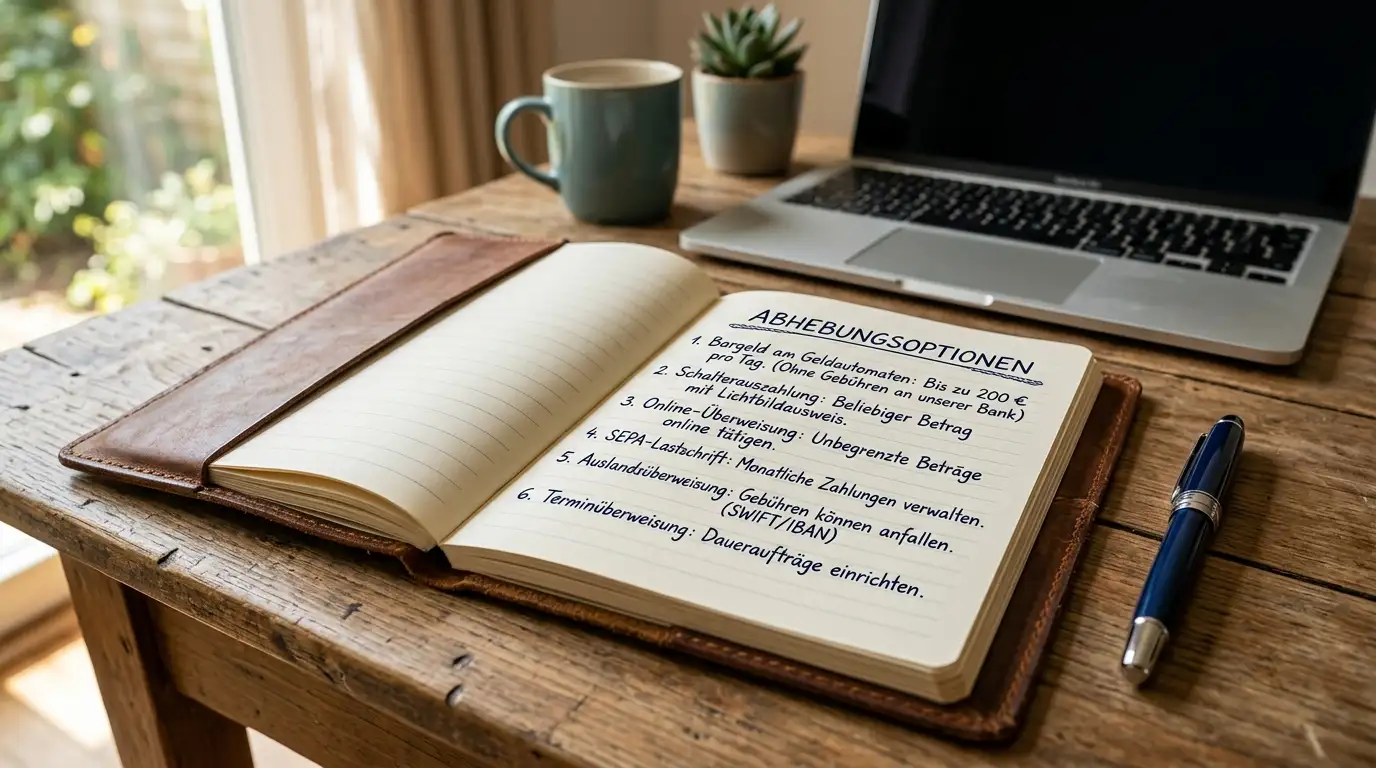 ABHEBUNGSOPTIONEN
1. Bargeld am Geldautomaten: Bis zu 200 €
pro Tag. (Ohne Gebühren an unserer Bank)
2. Schalterauszahlung: Beliebiger Betrag
mit Lichtbildausweis.
3. Online-Überweisung: Unbegrenzte Beträge
online tätigen.
4. SEPA-Lastschrift: Monatliche Zahlungen verwalten.
5. Auslandsüberweisung: Gebühren können anfallen.
(SWIFT/IBAN)
6. Terminüberweisung: Daueraufträge einrichten.